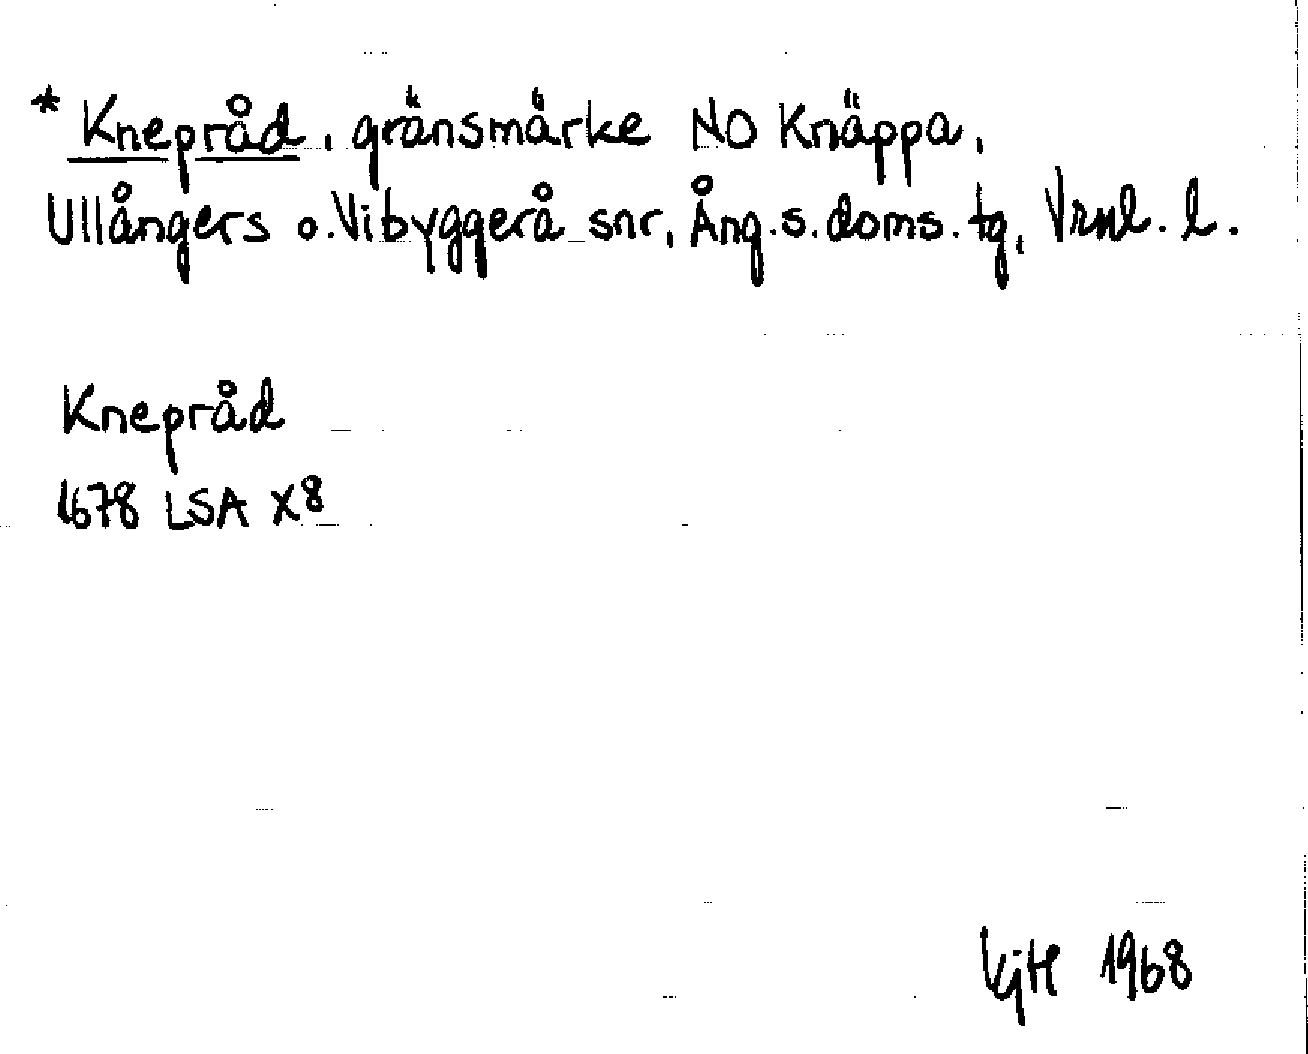 * Knepråd, gränsmärke NO Knäppa,
Ullångers o. Vibyggerå snr, Ång. s. doms. tg, Vrnl. l.
Knepråd
1678 LSA X8
1968